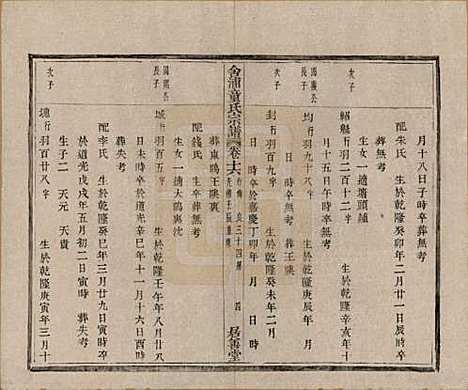 月十八日子時卒葬無考
配朱氏 生於乾隆癸卯年二月廿一日辰時
卒葬無考
生女一適塘頭鍾
次子
紹魁行羽二百十二 字 生於乾隆辛亥年十
十五日午時卒 葬無考
國慶公長子
均行羽九十八 字 生於乾隆庚辰年 月
日 時卒 葬王隩
次子
封行羽百九 字 生於乾隆癸未年二月
十八 時卒於嘉慶丁卯年 月 日 時
葬東鴉王隩裏
配錢氏 生卒葬無考
生女一適大鴉裏沈
舍浦童氏宗譜 卷十六
四
居善堂
長子
城行羽百五 字 生於乾隆壬午年八月廿八
日未時卒於道光辛巳年十一月十六日酉時
葬失考
配李氏 生於乾隆辛巳年三月廿九日寅時卒
於道光戊戌年五月初二日寅時 葬失考
生子二 天元 天貴
次子
塘行羽百廿八 字 生於乾隆庚寅年三月十